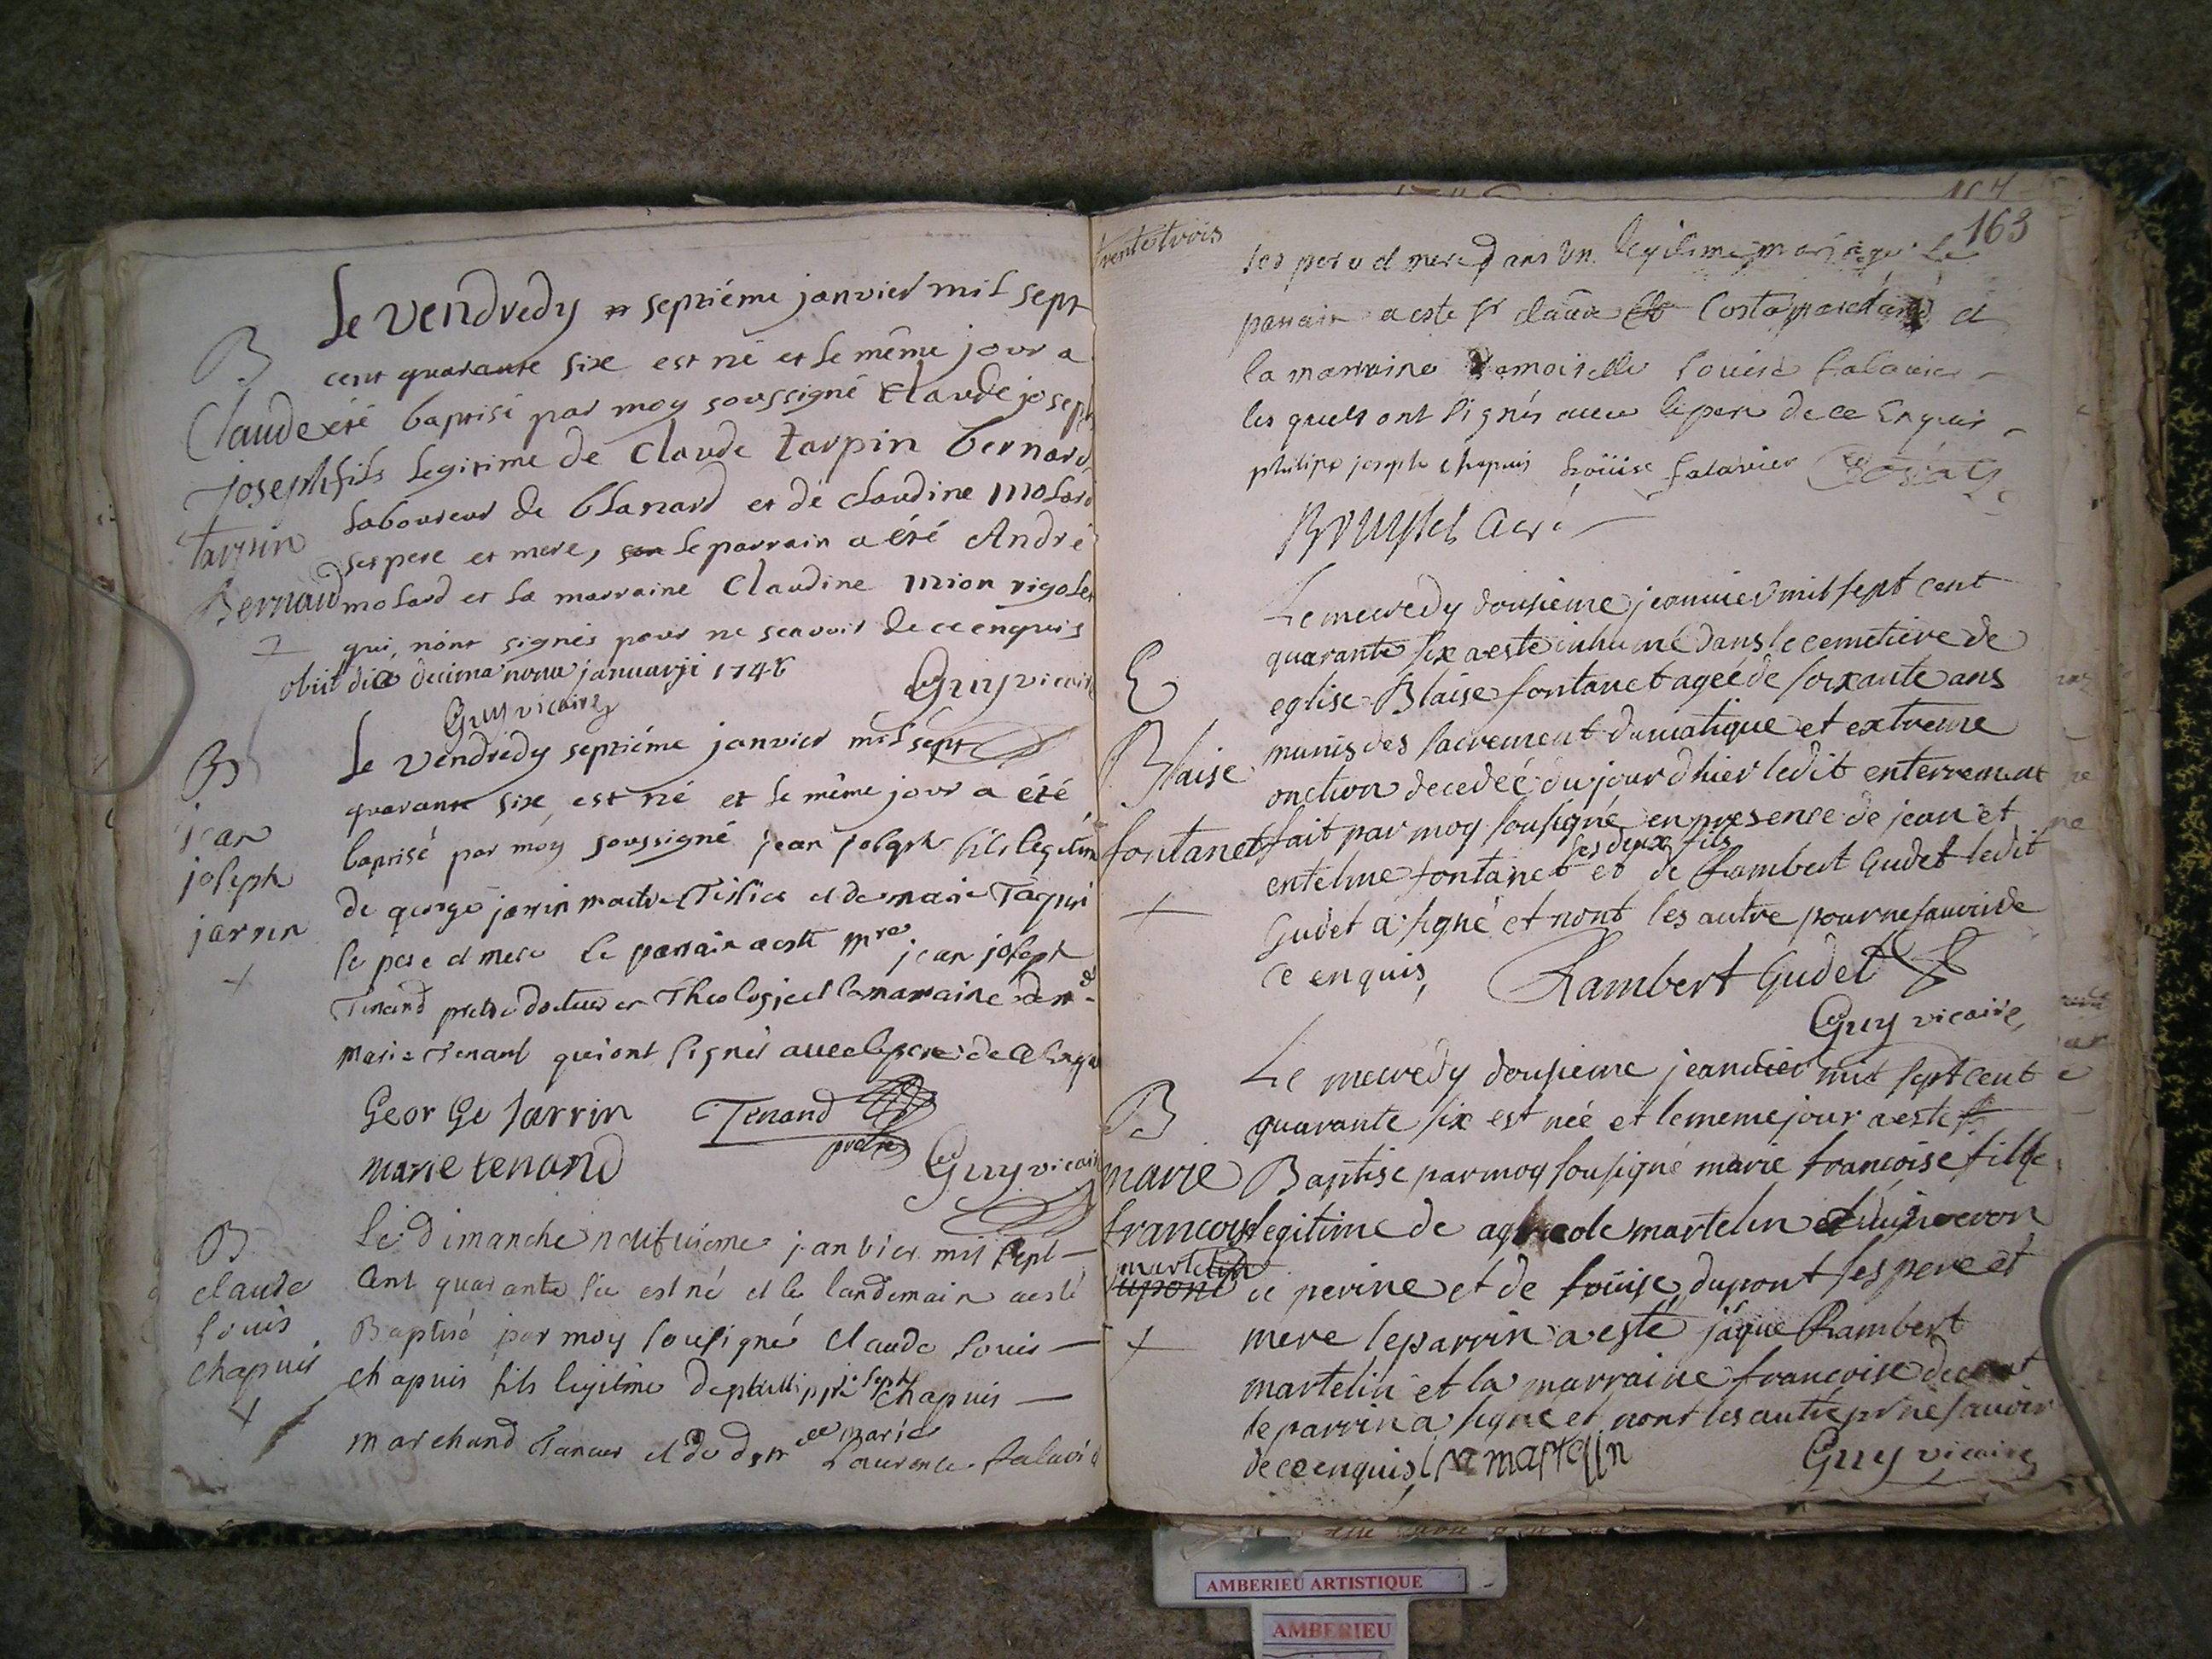 B
Claude
Joseph
Tarpin
Bernard
Le Vendredy septiéme janvier mil sept
cent quarante six est né et le même jour a
été baptisé par moy soussigné Claude joseph
fils legitime de Claude tarpin bernard
laboureur de blanard et de claudine molard
ses pere et mere, le parrain a été André
molard et la marraine Claudine mion rigolet
qui, n'ont signés pour ne scavoir de ce enquis
obiit die decima nona januarji 1746
Guy vicaire
Guy vicaire
B
jean
joseph
jarrin
+
Le Vendredy septiéme janvier mil sept
quarante six, est né et le même jour a été
baptisé par moy soussigné jean joseph fils legitime
de george jarrin maitre et de marie
se pere et mere le parrain a este mre jean joseph
Tenand pretre docteur en Theologie et la marraine
marie Tenant qui ont signés avec le pere de ce enquis
George Jarrin Tenand
pretre
marie tenand
Guy vicaire
B
claude
louis
chapuis
+
Le Dimanche neufvieme janvier mil sept
cent quarante six est né et le landemain a esté
Baptisé par moy sousigné claude louis
chapuis fils legitime de phillippe joseph chapuis
marchand Taneur et de dlle marie
Laurence
trente trois
163
ses pere et mere dans un legitime mariage le
parrain a este sr claude Costa marchand et
la marraine Demoiselle louise falavier
les quels ont signés avec le pere de ce Enquis
philipe joseph chapuis Loüise falavier
E
Blaise
fontanet
+
Le mecredy dousieme jeanvier mil sept cent
quarante six a este inhumé dans le cemetiere de
eglise Blaise fontanet ageé de soixante ans
munis des sacrement du viatique et extreme
onction decedeé du jour d'hier ledit enterrement
fait par moy sousigné en presence de jean et
entelme fontanet ses deux fils et de Rambert Gudet ledit
Gudet a signé et nont les autre pour ne savoir de
ce enquis, Rambert Gudet
Guy vicaire,
B
marie
francoise
martelin
dupont
+
Le mecredy dousieme jeanvier mil sept cent
quarante six est née et le meme jour a este
Baptise par moy sousigné marie francoise fille
legitime de agricole martelin
de perine et de loüise dupont ses pere et
mere le parrin a esté jaque Rambert
martelin et la marraine francoise
le parrin a signe et nont les autre pr ne savoir
de ce enquis martelin
Guy vicaire
AMBERIEU ARTISTIQUE
AMBERIEU